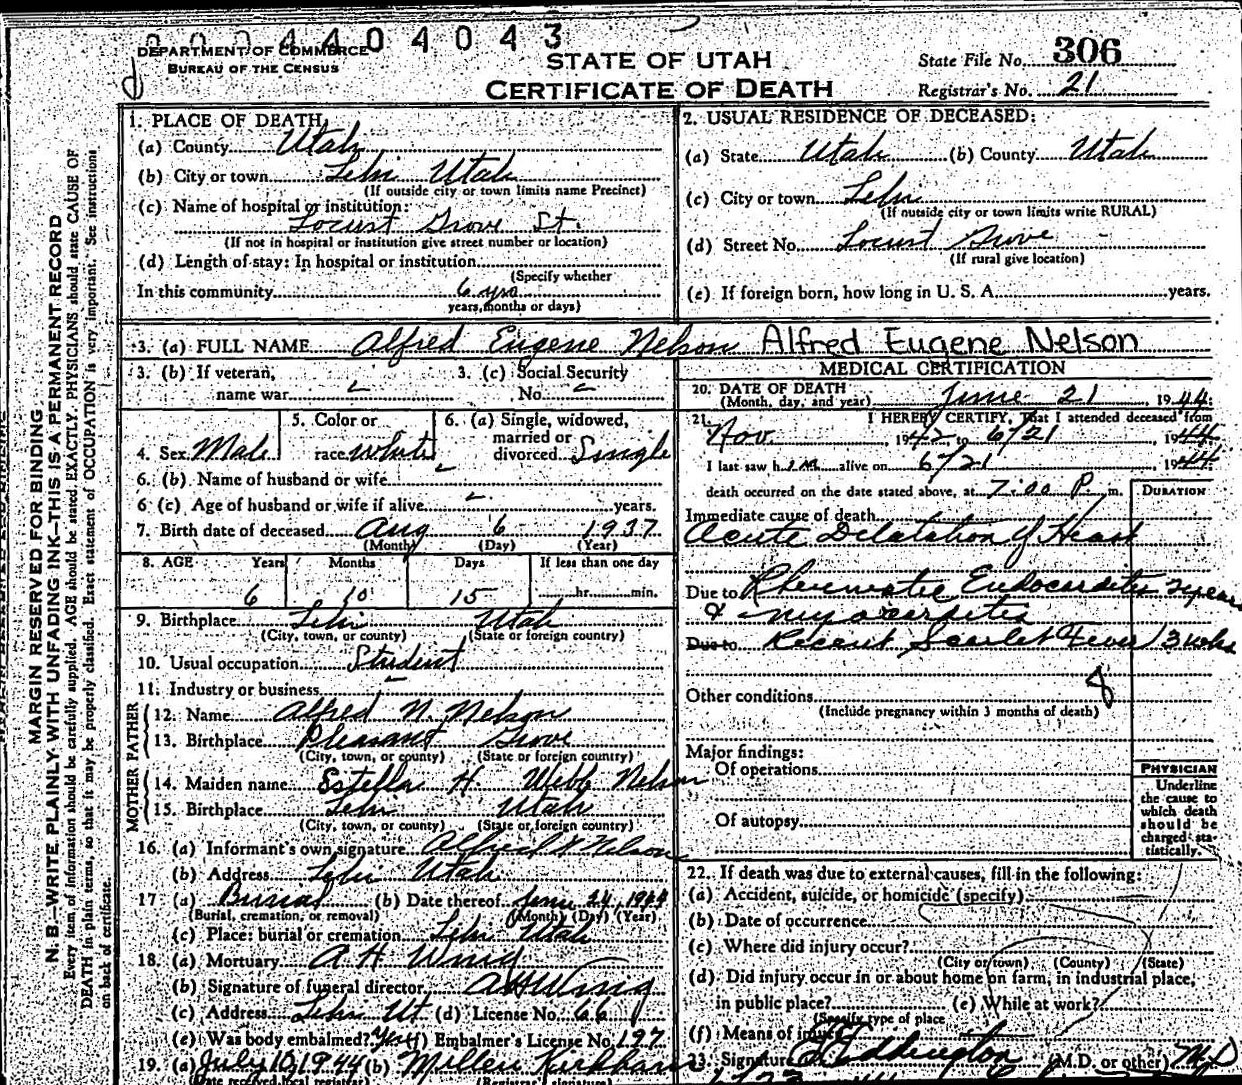 0 0 0 4 4 0 4 0 4 3
DEPARTMENT OF COMMERCE
BUREAU OF THE CENSUS
STATE OF UTAH
CERTIFICATE OF DEATH
State File No. 306
Registrar's No. 21
MARGIN RESERVED FOR BINDING
N. B.—WRITE PLAINLY, WITH UNFADING INK—THIS IS A PERMANENT RECORD
Every item of information should be carefully supplied. AGE should be stated EXACTLY. PHYSICIANS should state CAUSE OF
DEATH in plain terms, so that it may be properly classified. Exact statement of OCCUPATION is very important. See instructions
on back of certificate.
1. PLACE OF DEATH
(a) County Utah
(b) City or town Lehi Utah
(If outside city or town limits name Precinct)
(c) Name of hospital or institution:
Locust Grove St.
(If not in hospital or institution give street number or location)
(d) Length of stay: In hospital or institution
(Specify whether
In this community 6 yrs
years, months or days)
2. USUAL RESIDENCE OF DECEASED:
(a) State Utah (b) County Utah
(c) City or town Lehi
(If outside city or town limits write RURAL)
(d) Street No. Locust Grove
(If rural give location)
(e) If foreign born, how long in U. S. A. years.
3. (a) FULL NAME Alfred Eugene Nelson Alfred Eugene Nelson
3. (b) If veteran, 3. (c) Social Security
name war No.
4. Sex Male 5. Color or race White 6. (a) Single, widowed, married or divorced Single
6. (b) Name of husband or wife
6 (c) Age of husband or wife if alive years.
7. Birth date of deceased Aug 6 1937
(Month) (Day) (Year)
8. AGE Years Months Days If less than one day
6 10 15 hr. min.
9. Birthplace Lehi Utah
(City, town, or county) (State or foreign country)
10. Usual occupation Student
11. Industry or business
FATHER
12. Name Alfred N. Nelson
13. Birthplace Pleasant Grove
(City, town, or county) (State or foreign country)
MOTHER
14. Maiden name Estella H. Webb Nelson
15. Birthplace Lehi Utah
(City, town, or county) (State or foreign country)
16. (a) Informant's own signature Alfred N Nelson
(b) Address Lehi Utah
17 (a) Burial (b) Date thereof June 24, 1944
(Burial, cremation, or removal) (Month) (Day) (Year)
(c) Place: burial or cremation Lehi Utah
18. (a) Mortuary A H Wing
(b) Signature of funeral director A H Wing
(c) Address Lehi Ut. (d) License No. 66
(e) Was body embalmed? Yes (f) Embalmer's License No. 197
19. (a) July 10, 1944 (b) Millen Kirkham
(Date received local registrar) (Registrar's signature)
MEDICAL CERTIFICATION
20. DATE OF DEATH
(Month, day, and year) June 21 1944
21. I HEREBY CERTIFY, That I attended deceased from
Nov. 1942 to 6/21 1944
I last saw him alive on 6/21 1944
death occurred on the date stated above, at 7:00 P. m.
DURATION
Immediate cause of death
Acute Delatation of Heart
Due to Rheumatic Endocarditis 2 years
& myocarditis
Due to Recent Scarlet Fever 13 wks
8
Other conditions
(Include pregnancy within 3 months of death)
Major findings:
Of operations
Of autopsy
PHYSICIAN
Underline
the cause to
which death
should be
charged sta-
tistically.
22. If death was due to external causes, fill in the following:
(a) Accident, suicide, or homicide (specify)
(b) Date of occurrence
(c) Where did injury occur?
(City or town) (County) (State)
(d) Did injury occur in or about home on farm, in industrial place,
in public place? (e) While at work?
(Specify type of place
(f) Means of injury
23. Signature Eddington (M.D. or other) M.D